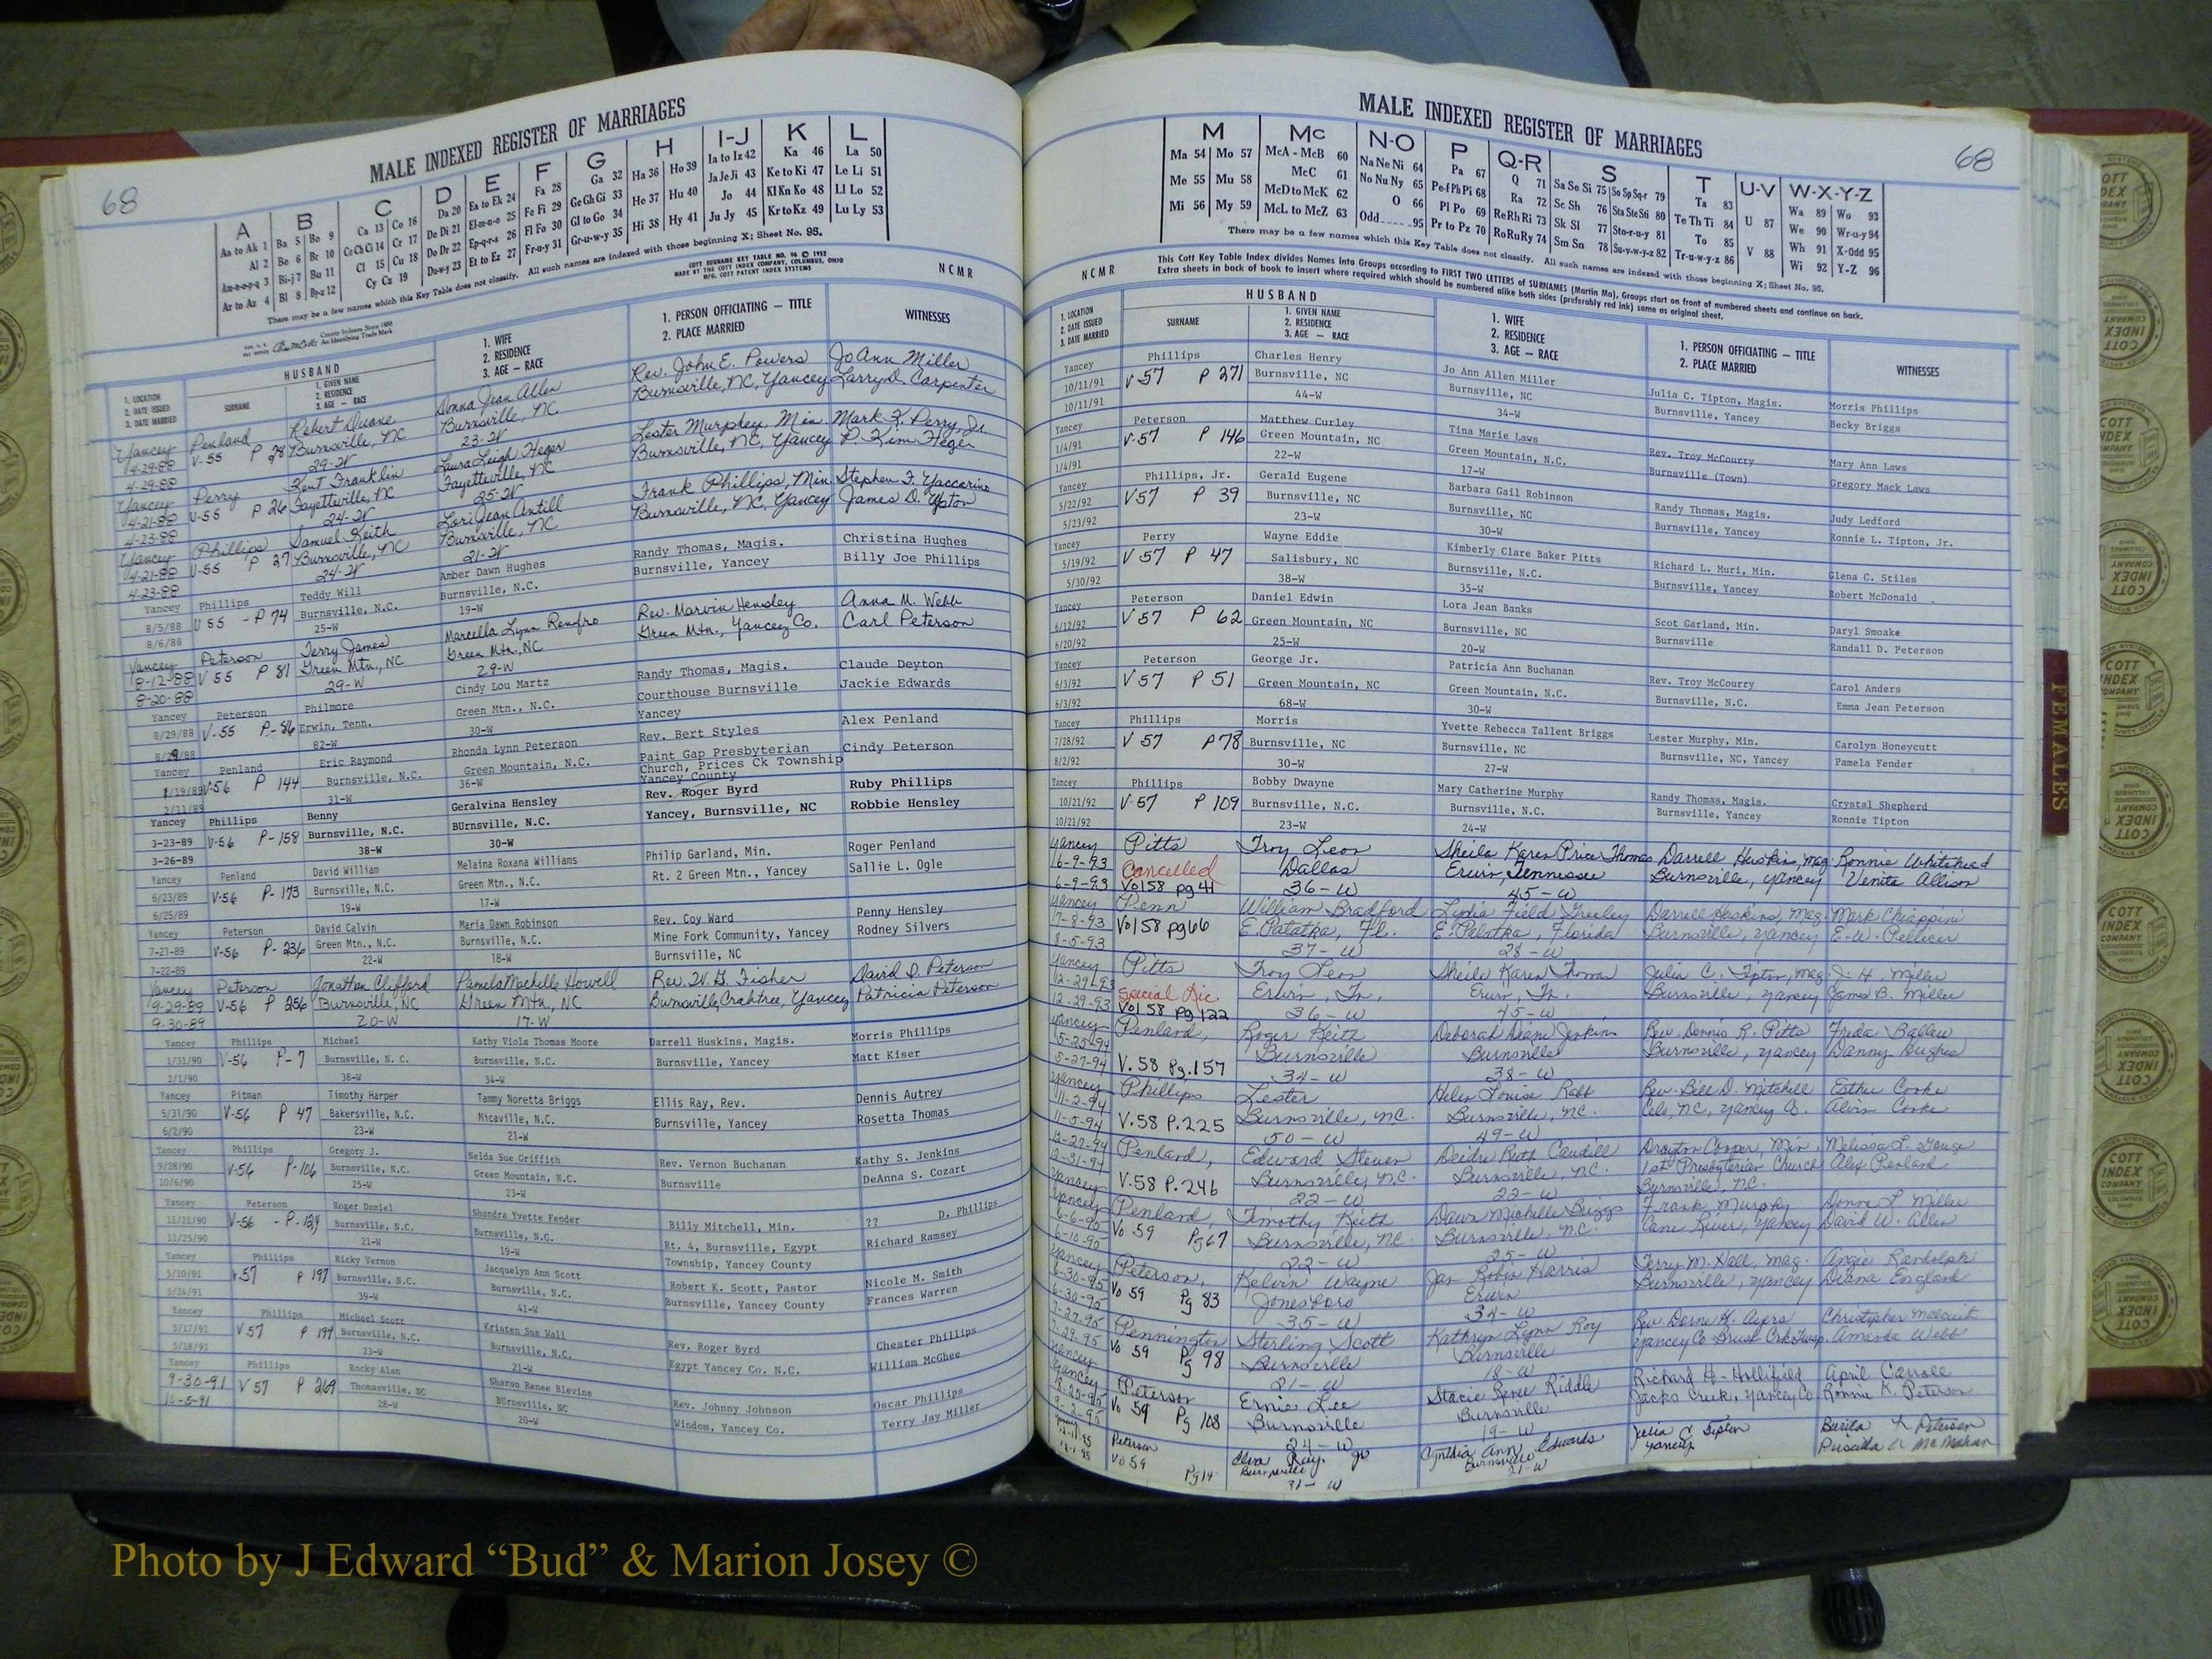 68
MALE INDEXED REGISTER OF MARRIAGES
A B C D E F G H I-J K L
Aa to Ak 1 Ba 5 Bo 9 Ca 13 Co 16 Da 20 Ea to Ek 24 Fa 28 Ga 32 Ha 36 Ho 39 Ia to Iz 42 Ka 46 La 50
Al 2 Be 6 Br 10 Ce Ch Ci 14 Cr 17 De Di 21 El-m-n-o 25 Fe Fi 29 Ge Gh Gi 33 He 37 Hu 40 Ja Je Ji 43 Ke to Ki 47 Le Li 51
Am-n-o-p-q 3 Bi-j 7 Bu 11 Cl 15 Cu 18 Do Dr 22 Ep-q-r-s 26 Fl Fo 30 Gl to Go 34 Hi 38 Hy 41 Jo 44 Kl Kn Ko 48 Ll Lo 52
Ar to Az 4 Bl 8 By-z 12 Cy Cz 19 Du-w-y 23 Et to Ez 27 Fr-u-y 31 Gr-u-w-y 35 Ju Jy 45 Kr to Kz 49 Lu Ly 53
There may be a few names which this Key Table does not classify. All such names are indexed with those beginning X; Sheet No. 95.
COTT SURNAME KEY TABLE NO. 96 © 1952
MADE BY THE COTT INDEX COMPANY, COLUMBUS, OHIO
MFG. COTT PATENT INDEX SYSTEMS
NCMR
County Indexes Since 1888
An Identifying Trade Mark
HUSBAND
1. LOCATION
2. DATE ISSUED
3. DATE MARRIED
SURNAME
1. GIVEN NAME
2. RESIDENCE
3. AGE — RACE
1. WIFE
2. RESIDENCE
3. AGE — RACE
1. PERSON OFFICIATING — TITLE
2. PLACE MARRIED
WITNESSES
Yancey Penland Robert Duane Donna Jean Allen Rev. John E. Powers JoAnn Miller
4-29-88 V-55 P 28 Burnsville, NC Burnsville, NC Burnsville, NC, Yancey Larry D. Carpenter
4-29-88 29-W 23-W
Yancey Perry Kent Franklin Laura Leigh Heger Lester Murphey, Min. Mark F. Perry, Jr.
4-21-88 V-55 P 26 Fayetteville, NC Fayetteville, NC Burnsville, NC, Yancey P. Kim Heger
4-23-88 24-W 25-W
Yancey Phillips Samuel Keith Lori Jean Antill Frank Phillips, Min. Stephen F. Yaccarino
4-21-88 V-55 P 27 Burnsville, NC Burnsville, NC Burnsville, NC, Yancey James D. Upton
4-23-88 24-W 21-W
Yancey Phillips Teddy Will Amber Dawn Hughes Randy Thomas, Magis. Christina Hughes
8/5/88 V 55 - P 74 Burnsville, N.C. Burnsville, N.C. Burnsville, Yancey Billy Joe Phillips
8/6/88 25-W 19-W
Yancey Peterson Terry James Marcella Lynn Renfro Rev. Marvin Hensley Anna M. Webb
8-12-88 V 55 P 81 Green Mtn., NC Green Mtn., NC Green Mtn., Yancey Co. Carl Peterson
8-20-88 29-W 29-W
Yancey Peterson Philmore Cindy Lou Martz Randy Thomas, Magis. Claude Deyton
8/29/88 V-55 P-86 Erwin, Tenn. Green Mtn., N.C. Courthouse Burnsville Jackie Edwards
8/29/88 82-W 30-W Yancey
Yancey Penland Eric Raymond Rhonda Lynn Peterson Rev. Bert Styles Alex Penland
1/19/89 V-56 P 144 Burnsville, N.C. Green Mountain, N.C. Paint Gap Presbyterian Cindy Peterson
2/11/89 31-W 36-W Church, Prices Ck Township
Yancey County
Yancey Phillips Benny Geralvina Hensley Rev. Roger Byrd Ruby Phillips
3-23-89 V-56 P-158 Burnsville, N.C. BUrnsville, N.C. Yancey, Burnsville, NC Robbie Hensley
3-26-89 38-W 30-W
Yancey Penland David William Melaina Roxana Williams Philip Garland, Min. Roger Penland
6/23/89 V-56 P-173 Burnsville, N.C. Green Mtn., N.C. Rt. 2 Green Mtn., Yancey Sallie L. Ogle
6/25/89 19-W 17-W
Yancey Peterson David Calvin Maria Dawn Robinson Rev. Coy Ward Penny Hensley
7-21-89 V-56 P-236 Green Mtn., N.C. Burnsville, N.C. Mine Fork Community, Yancey Rodney Silvers
7-22-89 22-W 18-W Burnsville, NC
Yancey Peterson Jonathan Clifford Pamela Machelle Howell Rev. W. G. Fisher David D. Peterson
9-29-89 V-56 P 256 Burnsville, NC Green Mtn, NC Burnsville, Crabtree, Yancey Patricia Peterson
9-30-89 20-W 17-W
Yancey Phillips Michael Kathy Viola Thomas Moore Darrell Huskins, Magis. Morris Phillips
1/31/90 V-56 P-7 Burnsville, N. C. Burnsville, N.C. Burnsville, Yancey Matt Kiser
2/1/90 38-W 34-W
Yancey Pitman Timothy Harper Tammy Noretta Briggs Ellis Ray, Rev. Dennis Autrey
5/31/90 V-56 P 47 Bakersville, N.C. Micaville, N.C. Burnsville, Yancey Rosetta Thomas
6/2/90 23-W 21-W
Yancey Phillips Gregory J. Nelda Sue Griffith Rev. Vernon Buchanan Kathy S. Jenkins
9/28/90 V-56 P-106 Burnsville, N.C. Green Mountain, N.C. Burnsville DeAnna S. Cozart
10/6/90 25-W 23-W
Yancey Peterson Roger Daniel Shandra Yvette Fender Billy Mitchell, Min. ?? D. Phillips
11/21/90 V-56 - P-129 Burnsville, N.C. Burnsville, N.C. Rt. 4, Burnsville, Egypt Richard Ramsey
11/25/90 21-W 19-W Township, Yancey County
Yancey Phillips Ricky Vernon Jacquelyn Ann Scott Robert K. Scott, Pastor Nicole M. Smith
5/10/91 V57 P 197 Burnsville, N.C. Burnsville, N.C. Burnsville, Yancey County Frances Warren
5/24/91 39-W 41-W
Yancey Phillips Michael Scott Kristen Sue Wall Rev. Roger Byrd Chester Phillips
5/17/91 V57 P 199 Burnsville, N.C. Burnsville, N.C. Egypt Yancey Co. N.C. William McGhee
5/18/91 23-W 21-W
Yancey Phillips Rocky Alan Sharon Renee Blevins Rev. Johnny Johnson Oscar Phillips
9-30-91 V 57 P 269 Thomasville, NC BUrnsville, NC Windom, Yancey Co. Terry Jay Miller
10-5-91 28-W 20-W
68
MALE INDEXED REGISTER OF MARRIAGES
M Mc N-O P Q-R S T U-V W-X-Y-Z
Ma 54 Mo 57 McA - McB 60 Na Ne Ni 64 Pa 67 Q 71 Sa Se Si 75 So Sp Sq-r 79 Ta 83 U 87 Wa 89 Wo 93
Me 55 Mu 58 McC 61 No Nu Ny 65 Pe-f Ph Pi 68 Ra 72 Sc Sh 76 Sta Ste Sti 80 Te Th Ti 84 V 88 We 90 Wr-u-y 94
Mi 56 My 59 McD to McK 62 O 66 Pl Po 69 Re Rh Ri 73 Sk Sl 77 Sto-r-u-y 81 To 85 Wh 91 X-Odd 95
McL to McZ 63 Odd 95 Pr to Pz 70 Ro Ru Ry 74 Sm Sn 78 Su-v-w-y-z 82 Tr-u-w-y-z 86 Wi 92 Y-Z 96
There may be a few names which this Key Table does not classify. All such names are indexed with those beginning X; Sheet No. 95.
This Cott Key Table Index divides Names into Groups according to FIRST TWO LETTERS of SURNAMES (Martin Ma), Groups start on front of numbered sheets and continue on back.
Extra sheets in back of book to insert where required which should be numbered alike both sides (preferably red ink) same as original sheet.
NCMR
HUSBAND
1. LOCATION
2. DATE ISSUED
3. DATE MARRIED
SURNAME
1. GIVEN NAME
2. RESIDENCE
3. AGE — RACE
1. WIFE
2. RESIDENCE
3. AGE — RACE
1. PERSON OFFICIATING — TITLE
2. PLACE MARRIED
WITNESSES
Yancey Phillips Charles Henry Jo Ann Allen Miller Julia C. Tipton, Magis. Morris Phillips
10/11/91 V 57 P 271 Burnsville, NC Burnsville, NC Burnsville, Yancey Becky Briggs
10/11/91 44-W 34-W
Yancey Peterson Matthew Curley Tina Marie Laws Rev. Troy McCourry Mary Ann Laws
1/4/91 V-57 P 146 Green Mountain, NC Green Mountain, N.C. Burnsville (Town) Gregory Mack Laws
1/4/91 22-W 17-W
Yancey Phillips, Jr. Gerald Eugene Barbara Gail Robinson Randy Thomas, Magis. Judy Ledford
5/22/92 V57 P 39 Burnsville, NC Burnsville, NC Burnsville, Yancey Ronnie L. Tipton, Jr.
5/23/92 23-W 30-W
Yancey Perry Wayne Eddie Kimberly Clare Baker Pitts Richard L. Muri, Min. Glena C. Stiles
5/19/92 V 57 P 47 Salisbury, NC Burnsville, N.C. Burnsville, Yancey Robert McDonald
5/30/92 38-W 35-W
Yancey Peterson Daniel Edwin Lora Jean Banks Scot Garland, Min. Daryl Smoake
6/12/92 V 57 P 62 Green Mountain, NC Burnsville, NC Burnsville Randall D. Peterson
6/20/92 25-W 20-W
Yancey Peterson George Jr. Patricia Ann Buchanan Rev. Troy McCourry Carol Anders
6/3/92 V 57 P 51 Green Mountain, NC Green Mountain, N.C. Burnsville, N.C. Emma Jean Peterson
6/3/92 68-W 30-W
Yancey Phillips Morris Yvette Rebecca Tallent Briggs Lester Murphy, Min. Carolyn Honeycutt
7/28/92 V 57 P 78 Burnsville, NC Burnsville, NC Burnsville, NC, Yancey Pamela Fender
8/2/92 30-W 27-W
Yancey Phillips Bobby Dwayne Mary Catherine Murphy Randy Thomas, Magis. Crystal Shepherd
10/21/92 V-57 P 109 Burnsville, N.C. Burnsville, N.C. Burnsville, Yancey Ronnie Tipton
10/21/92 23-W 24-W
Yancey Pitts Troy Leon Sheila Karen Price Thomas Darrell Huskins, Mag. Ronnie Whitehead
6-9-93 Cancelled Dallas Erwin, Tennessee Burnsville, Yancey Venita Allison
6-9-93 Vol 58 pg 41 36-W 45-W
Yancey Penn William Bradford Lydia Field Greeley Darrell Huskins, Mag. Mark Chiappini
7-8-93 Vol 58 pg 66 E. Palatka, Fl. E. Palatka, Florida Burnsville, Yancey E. W. Pellicer
8-5-93 37-W 28-W
Yancey Pitts Troy Leon Sheila Karen Thomas Julia C. Tipton, Mag. J. H. Miller
12-29-93 Special Lic. Erwin, Tn. Erwin, Tn. Burnsville, Yancey James B. Miller
12-29-93 Vol 58 pg 122 36-W 45-W
Yancey Penland, Roger Keith Deborah Diane Jenkins Rev. Dennis R. Pitts Freda Ballew
5-25-94 Burnsville Burnsville Burnsville, Yancey Danny Hughes
5-27-94 V. 58 Pg. 157 34-W 38-W
Yancey Phillips Lester Helen Louise Rabb Rev. Bill D. Mitchell Esther Cooke
11-2-94 Burnsville, N.C. Burnsville, N.C. Celo, NC, Yancey Co. Alvin Cooke
11-5-94 V. 58 P. 225 50-W 49-W
12-27-94 Penland, Edward Steven Deidre Ruth Caudill Drayton Cooper, Min. Melissa L. Gouge
12-31-94 Burnsville, N.C. Burnsville, N.C. 1st Presbyterian Church Alex Penland
Yancey V. 58 P. 246 22-W 22-W Burnsville, NC.
Yancey Penland, Timothy Keith Dawn Michelle Briggs Frank Murphy Donna L Miller
6-6-95 Vo 59 Pg 67 Burnsville, NC. Burnsville, N.C. Cane River, Yancey David W. Allen
6-10-95 22-W 25-W
Yancey Peterson, Kelvin Wayne Jan Robin Harris Terry M. Hall, Mag. Angie Randolph
6-30-95 Vo 59 Pg 83 Jonesboro Erwin Burnsville, Yancey Diana England
6-30-95 35-W 34-W
7-27-95 Pennington Sterling Scott Kathryn Lynn Roy Yancey Co. Brush Crk Twsp. Amanda Webb
7-29-95 Vo 59 Pg 98 Burnsville Burnsville
Yancey 21-W 18-W
Yancey Peterson Ernie Lee Stacie Renee Riddle Richard H. Hollifield April Carroll
8-25-95 Vo 59 Pg 108 Burnsville Burnsville Jacks Creek, Yancey Co. Ronnie K. Peterson
9-2-95 24-W 19-W
Yancey Peterson Elva Ray, Jr Cynthia Ann Edwards Julia C Tipton Peterson
12-1-95 Vo 59 Pg 14 Burnsville Burnsville Yancey Priscilla McMahan
12-1-95 31-W 21-W
FEMALES
COTT INDEX COMPANY
Photo by J Edward “Bud” & Marion Josey ©